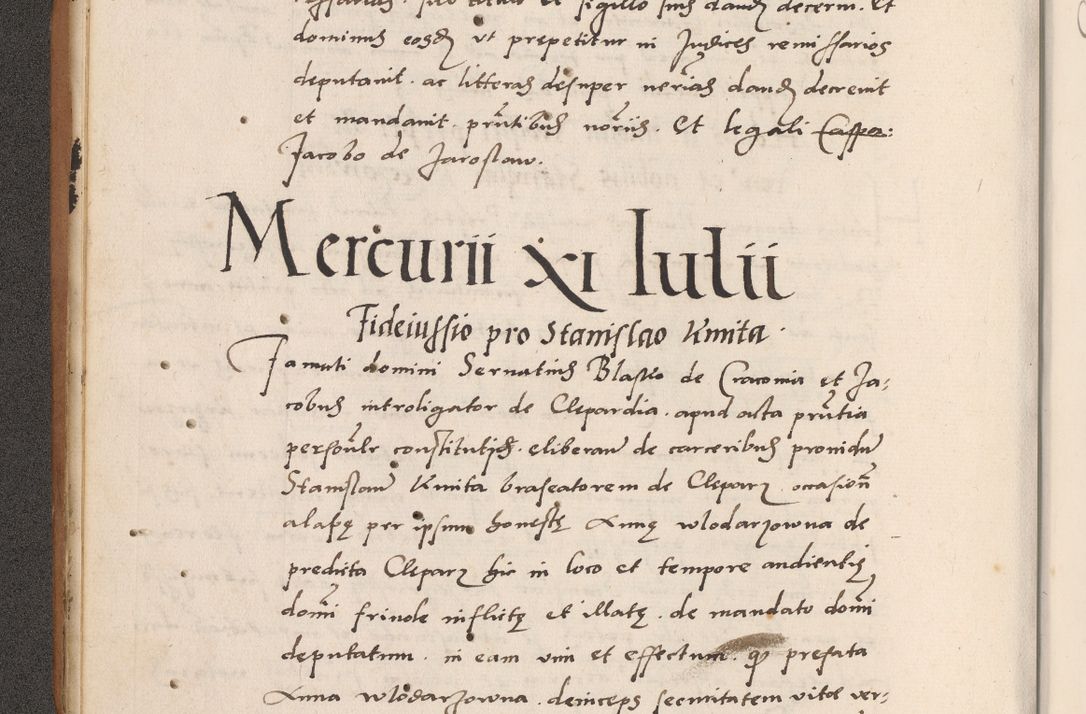 sub titulo et sigillo suis dandas decernit. Et
dominus eosdem ut prepetitur in Judices remissarios
deputavit. ac litteras desuper neccrias dandas decrevit
et mandavit. prntibus norriis. Et legali Casper:
Jacobo de Jaroslaw.
Mercurii XI Iulii
Fideiussio pro Stanislao Kmita.
Famati domini Servatius Blasko de Cracovia et Ja-
cobus introligator de Clepardia. apud acta prntia
personlr constituti. eliberavit de carceribus providum
Stanislaum Kmita braseatorem de Cleparz occasione
alapę per ipsum honestę Annę Wlodarzowna de
predicta Cleparz hic in loco et tempore audientię
domi frivole inflictę et illatę. de mandato domi
deputatum. in eam vim et effectum. quod prefata
Anna Wlodarzowna. deinceps securitatem vitae ver-